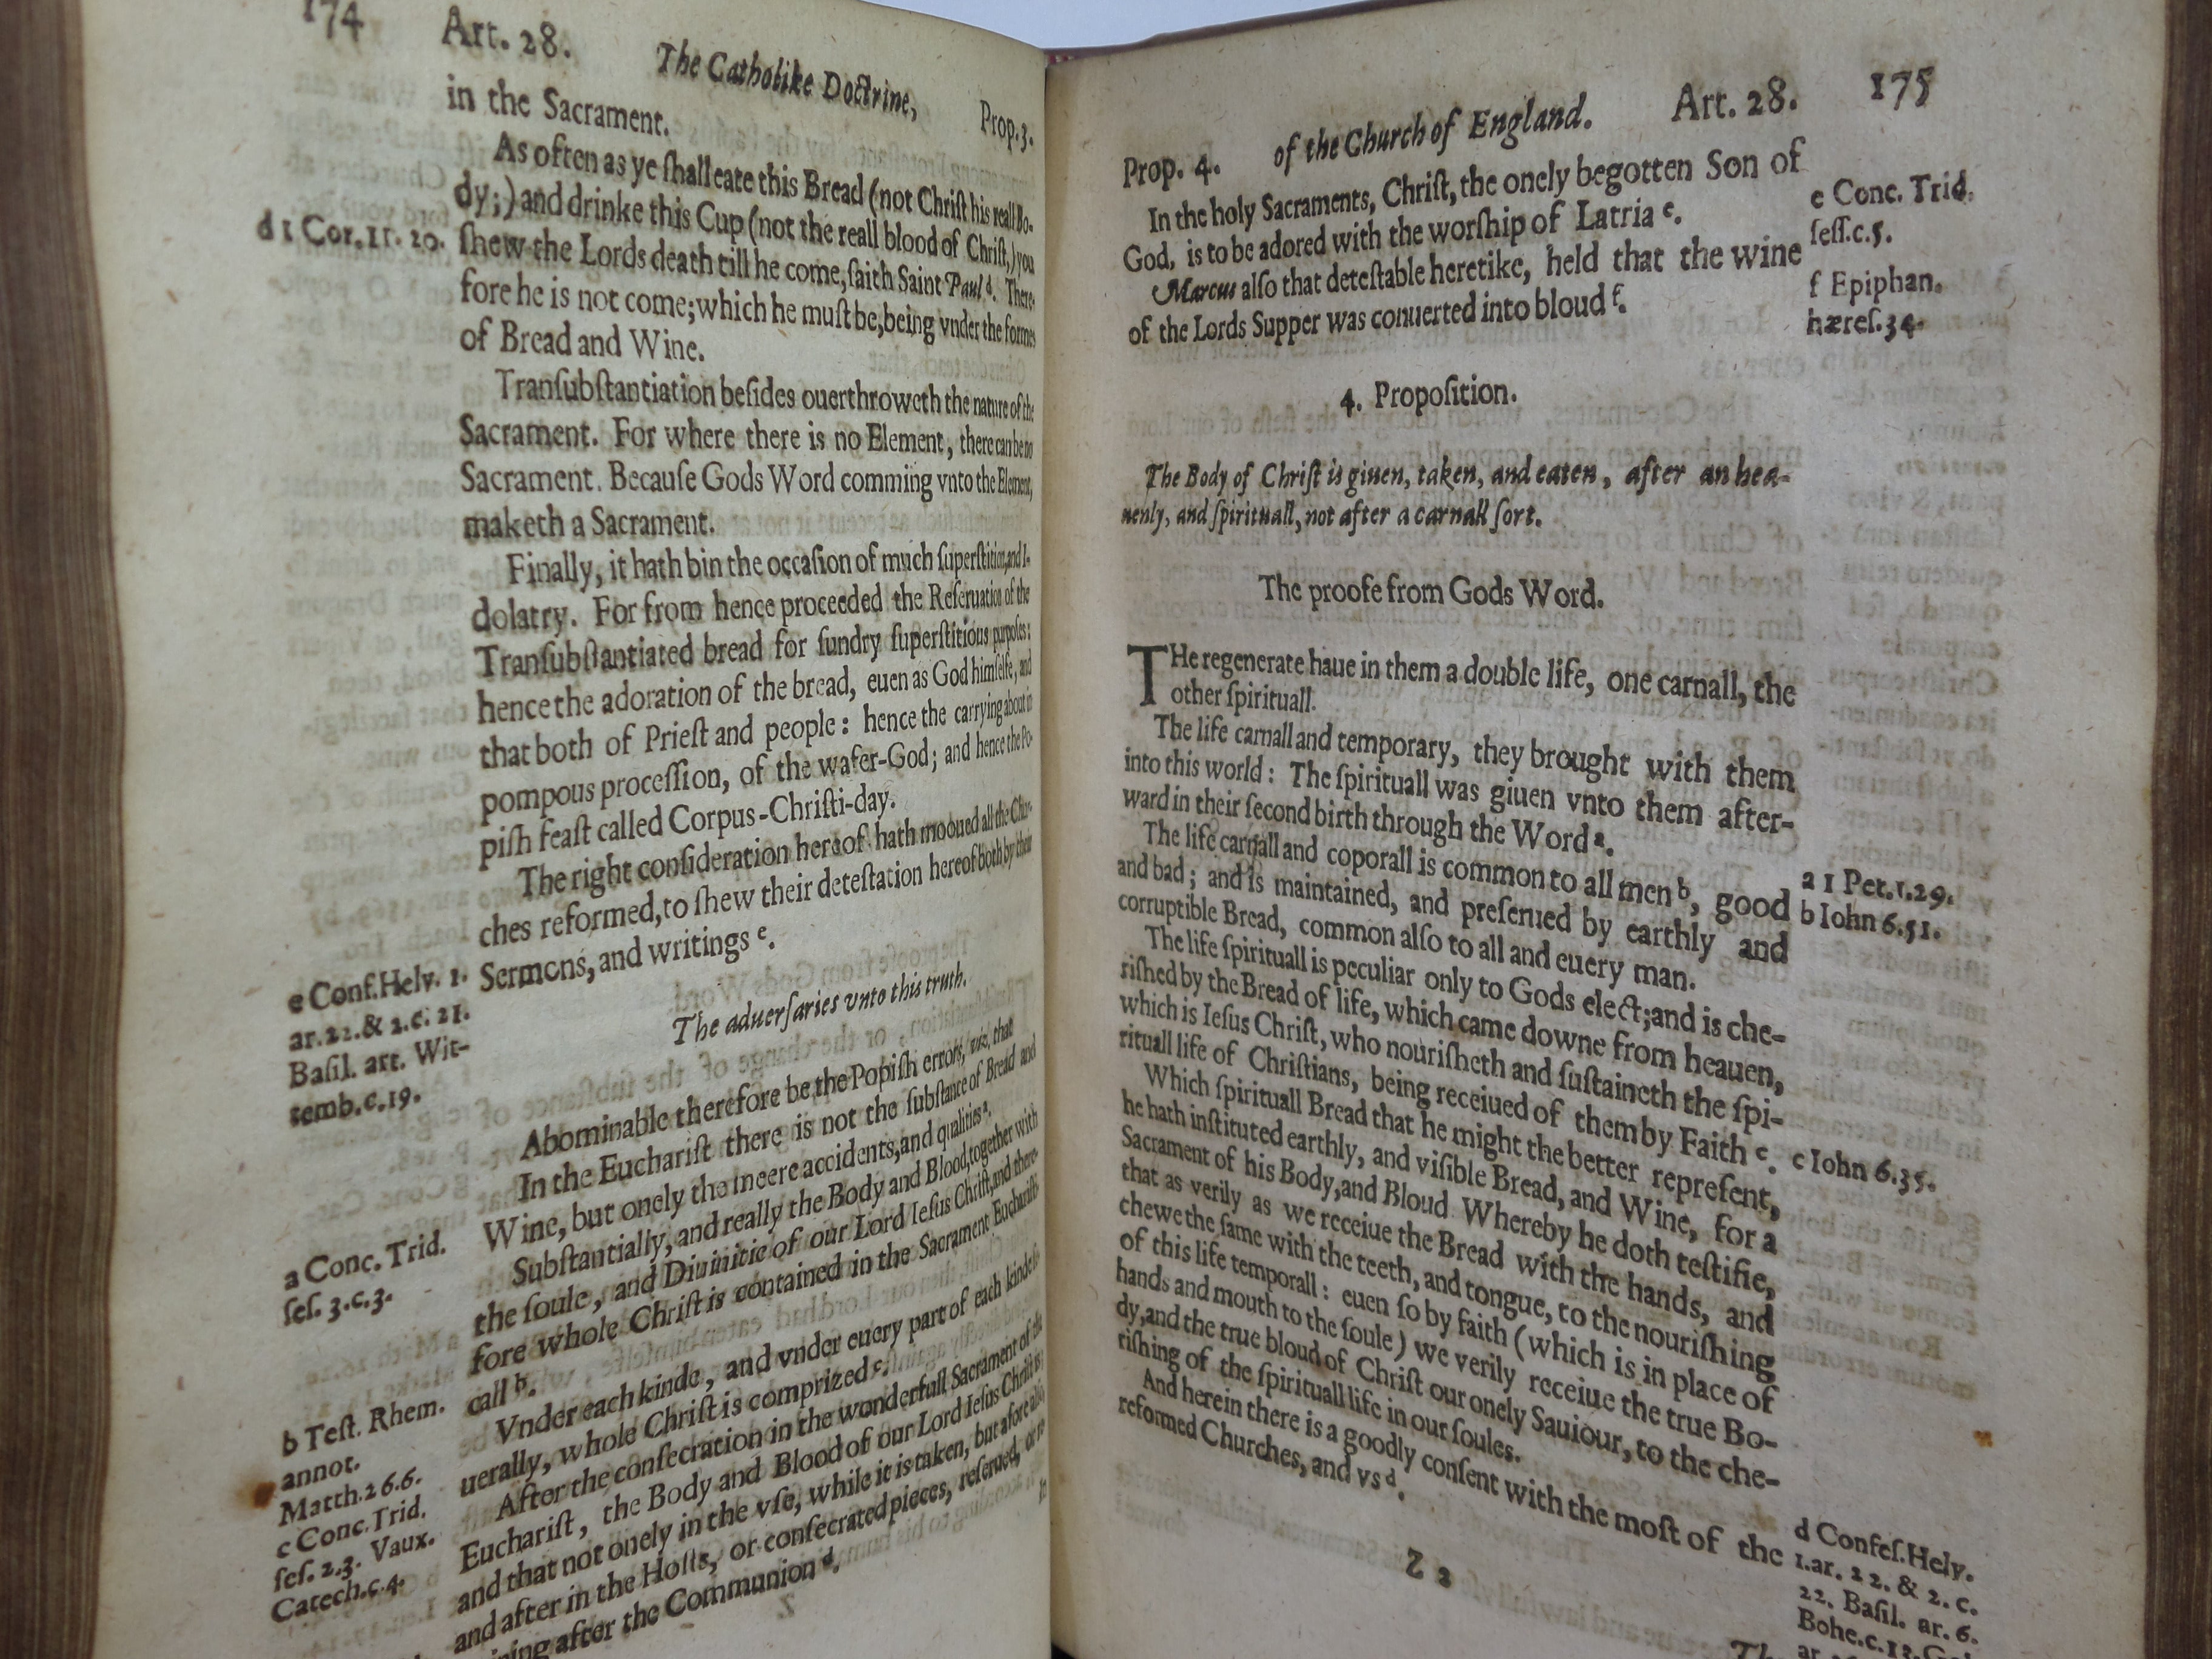 174 Art. 28. The Catholike Doctrine, Prop. 3.
in the Sacrament.
As often as ye ſhall eate this Bread (not Chriſt his reall Bo-
dy;) and drinke this Cup (not the reall blood of Chriſt,) you
d 1 Cor. 11. 20.
ſhew the Lords death till he come, ſaith Saint Paul d. There-
fore he is not come; which he muſt be, being vnder the formes
of Bread and Wine.
Tranſubſtantiation beſides ouerthroweth the nature of the
Sacrament. For where there is no Element, there can be no
Sacrament. Becauſe Gods Word comming vnto the Element,
maketh a Sacrament.
Finally, it hath bin the occaſion of much ſuperſtition, and I-
dolatry. For from hence proceeded the Reſeruation of the
Tranſubſtantiated bread for ſundry ſuperſtitious purpoſes:
hence the adoration of the bread, euen as God himſelfe, and
that both of Prieſt and people: hence the carrying about in
pompous proceſſion, of the wafer-God; and hence the Po-
piſh feaſt called Corpus-Chriſti-day.
The right conſideration hereof hath mooued all the Chur-
ches reformed, to ſhew their deteſtation hereof both by their
Sermons, and writings e.
e Conf. Helv. 1.
ar. 22. & 2. c. 21.
Baſil. art. Wit-
temb. c. 19.
The aduerſaries vnto this truth.
Abominable therefore be the Popiſh errors, viz, that
In the Euchariſt there is not the ſubſtance of Bread and
Wine, but onely the meere accidents, and qualities a.
a Conc. Trid.
ſeſ. 3. c. 3.
Subſtantially, and really the Body and Blood, together with
the ſoule, and Diuinitie of our Lord Ieſus Chriſt, and there-
fore whole Chriſt is contained in the Sacrament Euchariſti-
call b.
b Teſt. Rhem.
annot.
Matth. 26.6.
Vnder each kinde, and vnder euery part of each kinde
uerally, whole Chriſt is comprized c.
c Conc. Trid.
ſeſ. 2.3. Vaux.
Catech. c. 4.
After the conſecration in the wonderfull Sacrament of the
Euchariſt, the Body and Blood of our Lord Ieſus Chriſt is;
and that not onely in the vſe, while it is taken, but afore alſo
and after in the Hoſts, or conſecrated pieces, reſerued, or re-
ning after the Communion d.
Prop. 4. of the Church of England. Art. 28. 175
In the holy Sacraments, Chriſt, the onely begotten Son of
God, is to be adored with the worſhip of Latria e.
e Conc. Trid.
ſeſſ. c. 5.
Marcus alſo that deteſtable heretike, held that the wine
of the Lords Supper was conuerted into bloud f.
f Epiphan.
hæreſ. 34.
4. Propoſition.
The Body of Chriſt is giuen, taken, and eaten, after an hea-
uenly, and ſpirituall, not after a carnall ſort.
The proofe from Gods Word.
THe regenerate haue in them a double life, one carnall, the
other ſpirituall.
The life carnall and temporary, they brought with them
into this world: The ſpirituall was giuen vnto them after-
ward in their ſecond birth through the Word a.
a 1 Pet. 1.29.
The life carnall and coporall is common to all men b, good
b Iohn 6.51.
and bad; and is maintained, and preſerued by earthly and
corruptible Bread, common alſo to all and euery man.
The life ſpirituall is peculiar only to Gods elect; and is che-
riſhed by the Bread of life, which came downe from heauen,
which is Ieſus Chriſt, who nouriſheth and ſuſtaineth the ſpi-
rituall life of Chriſtians, being receiued of them by Faith c.
c Iohn 6.35.
Which ſpirituall Bread that he might the better repreſent,
he hath inſtituted earthly, and viſible Bread, and Wine, for a
Sacrament of his Body, and Bloud. Whereby he doth teſtifie,
that as verily as we receiue the Bread with the hands, and
chewe the ſame with the teeth, and tongue, to the nouriſhing
of this life temporall: euen ſo by faith (which is in place of
hands and mouth to the ſoule) we verily receiue the true Bo-
dy, and the true bloud of Chriſt our onely Sauiour, to the che-
riſhing of the ſpirituall life in our ſoules.
And herein there is a goodly conſent with the moſt of the
reformed Churches, and vs d.
d Confeſ. Helv.
1. ar. 22. & 2. c.
22. Baſil. ar. 6.
Bohe. c. 13.
Z 2